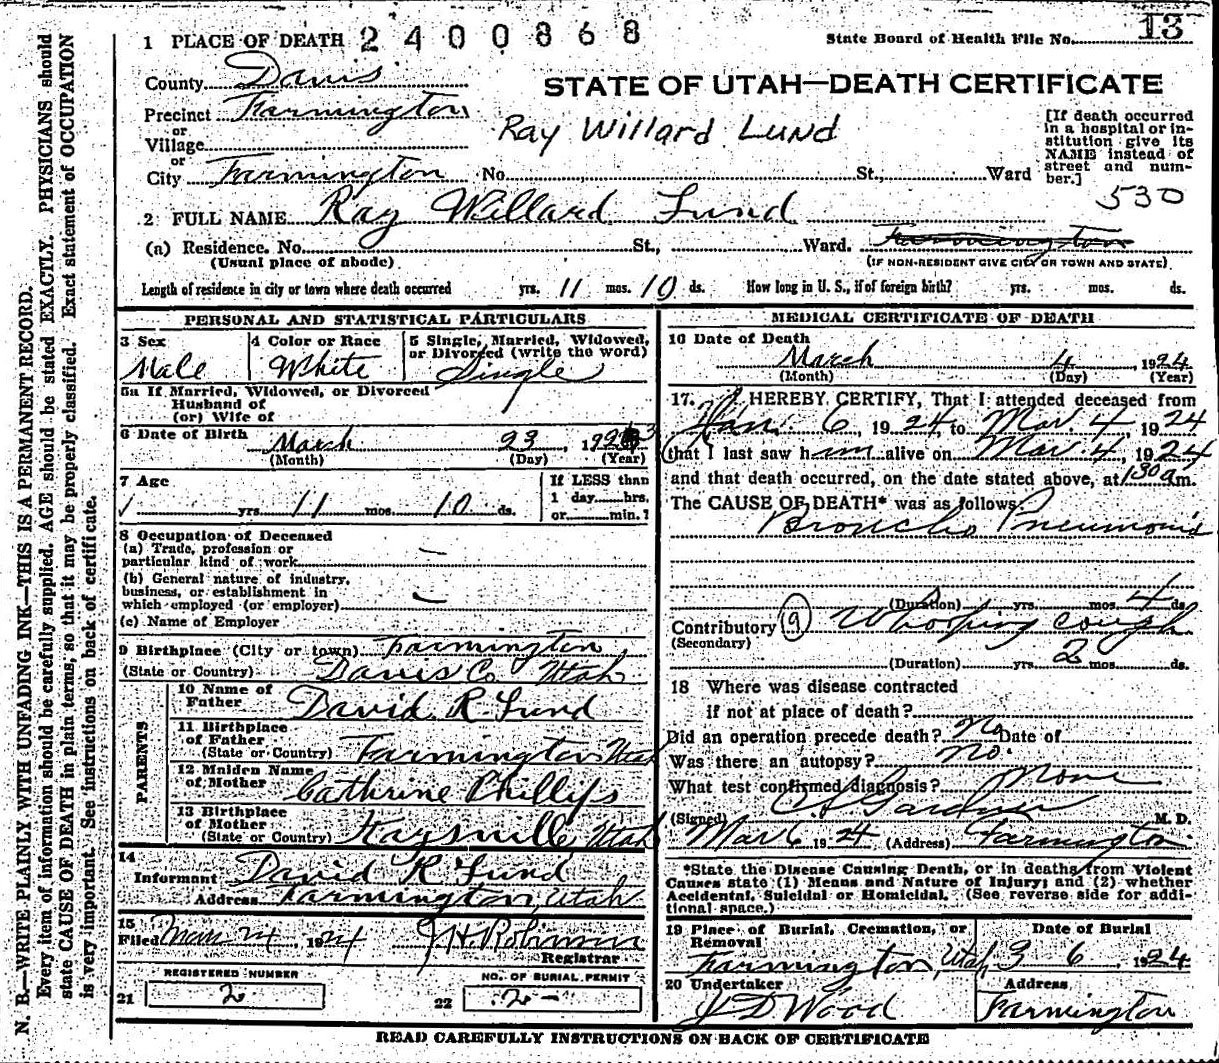 13
1 PLACE OF DEATH 2400868
State Board of Health File No.
County Davis
STATE OF UTAH—DEATH CERTIFICATE
Precinct Farmington
or
Village
or
City Farmington No. St., Ward
Ray Willard Lund
[If death occurred
in a hospital or in-
stitution give its
NAME instead of
street and num-
ber.]
530
2 FULL NAME Ray Willard Lund
(a) Residence. No. St., Ward. Farmington
(Usual place of abode) (IF NON-RESIDENT GIVE CITY OR TOWN AND STATE)
Length of residence in city or town where death occurred yrs. 11 mos. 10 ds. How long in U. S., if of foreign birth? yrs. mos. ds.
PERSONAL AND STATISTICAL PARTICULARS
3 Sex
Male
4 Color or Race
White
5 Single, Married, Widowed,
or Divorced (write the word)
Single
5a If Married, Widowed, or Divorced
Husband of
(or) Wife of
6 Date of Birth
March 23
(Month) (Day) (Year)
7 Age
1 yrs. 11 mos. 10 ds.
If LESS than
1 day hrs.
or min.?
8 Occupation of Deceased
(a) Trade, profession or
particular kind of work —
(b) General nature of industry,
business, or establishment in
which employed (or employer) —
(c) Name of Employer
9 Birthplace (City or town) Farmington
(State or Country) Davis Co. Utah
PARENTS
10 Name of
Father David R. Lund
11 Birthplace
of Father
(State or Country) Farmington Utah
12 Maiden Name
of Mother Cathrine Phillips
13 Birthplace
of Mother
(State or Country) Kaysville Utah
14
Informant David R Lund
Address Farmington, Utah
15
Filed Mar 24, 1924 J H Robinson
Registrar
REGISTERED NUMBER
21 2
NO. OF BURIAL PERMIT
22 2-
MEDICAL CERTIFICATE OF DEATH
16 Date of Death
March 4, 1924
(Month) (Day) (Year)
17. I HEREBY CERTIFY, That I attended deceased from
6, 1924, to Mar. 4, 1924
that I last saw him alive on Mar. 4, 1924
and that death occurred, on the date stated above, at 130 a m.
The CAUSE OF DEATH* was as follows:
Broncho Pneumonia
(Duration) yrs. mos. 4 ds.
Contributory (9) Whooping cough
(Secondary)
(Duration) yrs. 2 mos. ds.
18 Where was disease contracted
if not at place of death?
Did an operation precede death? No Date of
Was there an autopsy? no.
What test confirmed diagnosis? None
(Signed) Gardner M. D.
Mar 6 1924 (Address) Farmington
*State the Disease Causing Death, or in deaths from Violent
Causes state (1) Means and Nature of Injury; and (2) whether
Accidental, Suicidal or Homicidal. (See reverse side for addi-
tional space.)
19 Place of Burial, Cremation, or
Removal
Farmington, Utah
Date of Burial
3 6, 1924
20 Undertaker
J D Wood
Address
Farmington
READ CAREFULLY INSTRUCTIONS ON BACK OF CERTIFICATE
N. B.—WRITE PLAINLY WITH UNFADING INK—THIS IS A PERMANENT RECORD.
Every item of information should be carefully supplied. AGE should be stated EXACTLY. PHYSICIANS should
state CAUSE OF DEATH in plain terms, so that it may be properly classified. Exact statement of OCCUPATION
is very important. See instructions on back of certificate.